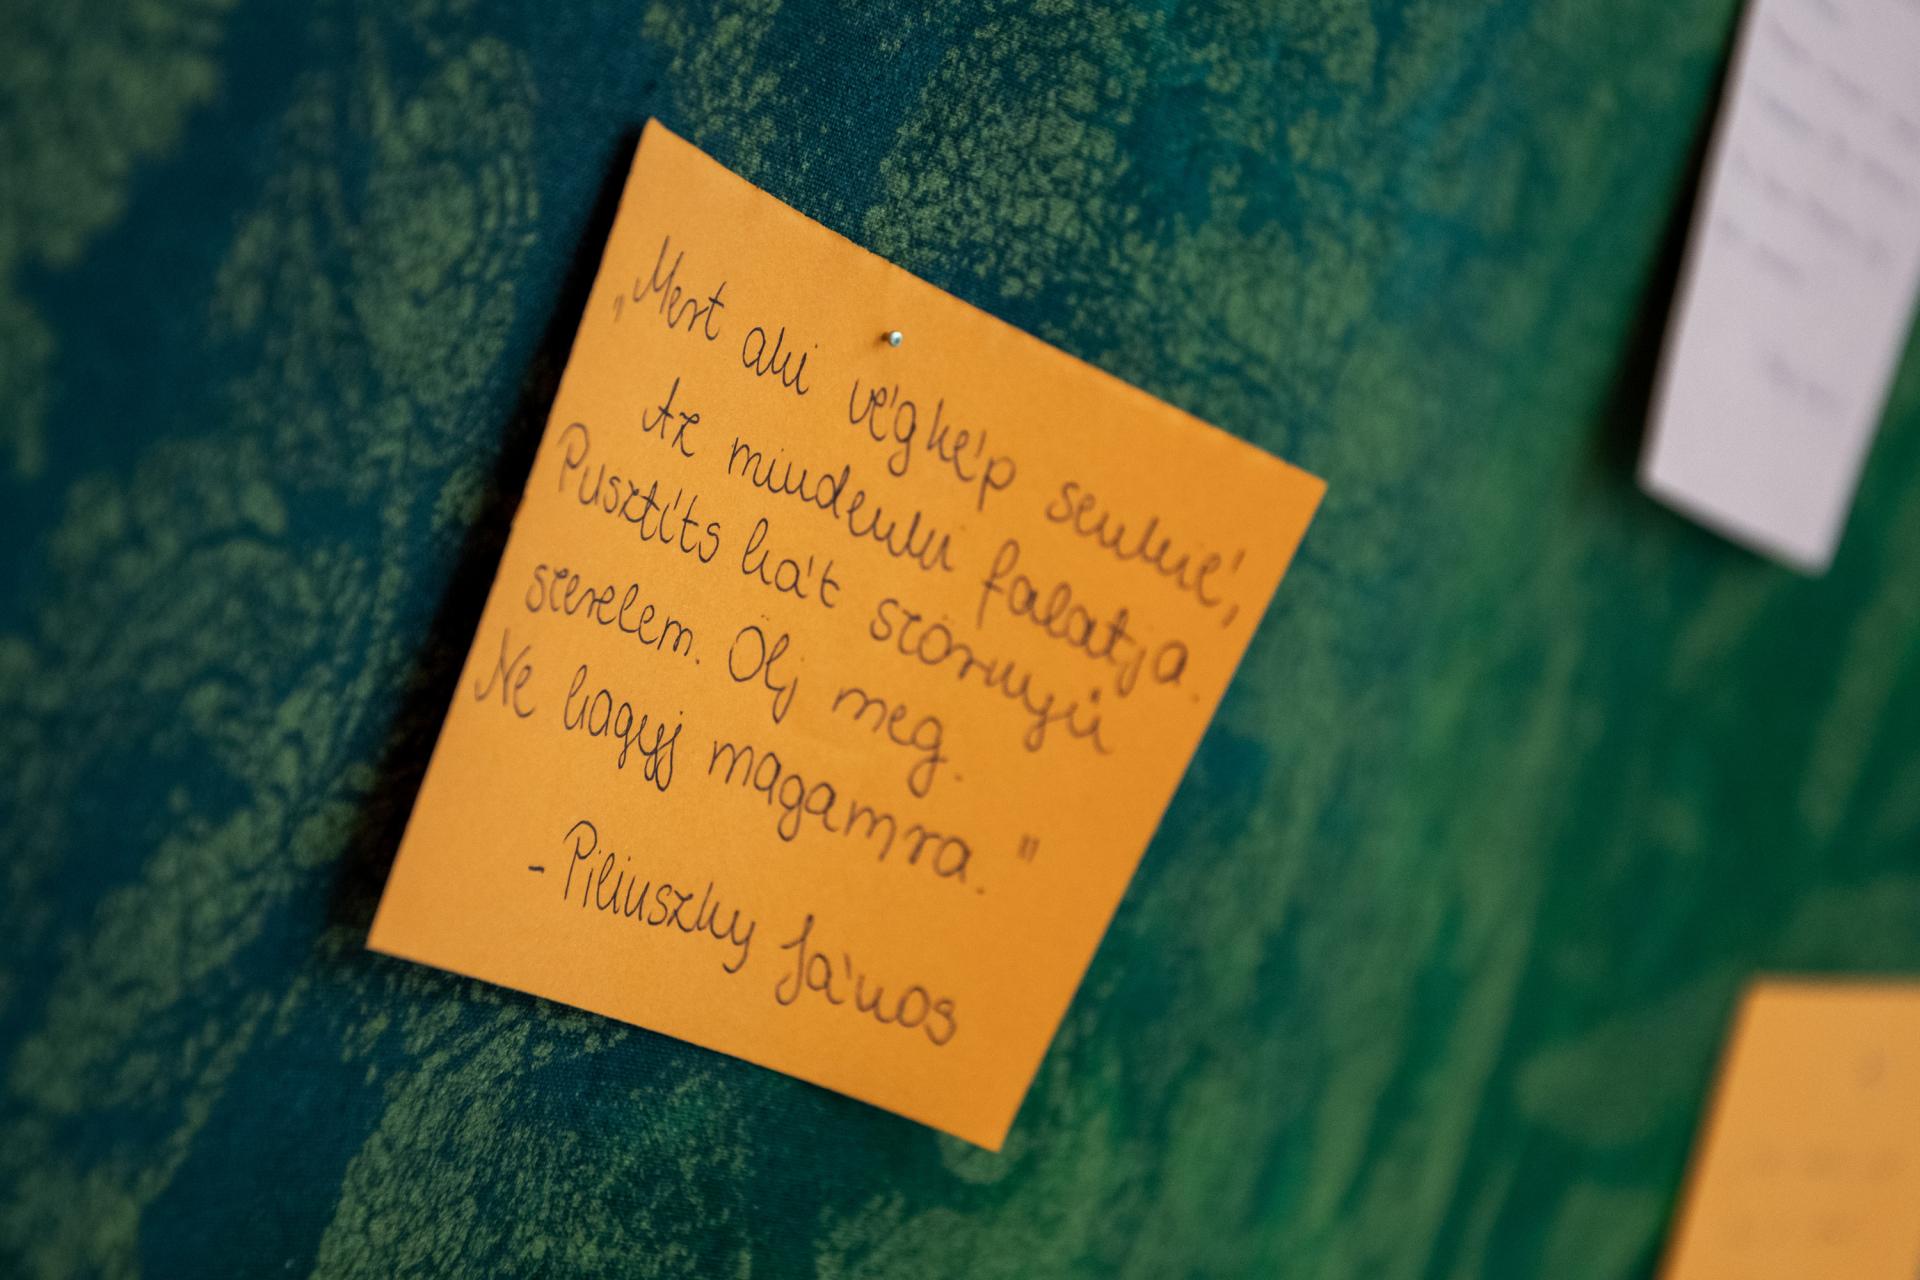 „Mert aki végkép senkié,
Az mindenki falatja.
Pusztíts hát szörnyű
szerelem. Ölj meg.
Ne hagyj magamra."
- Piliuszky János